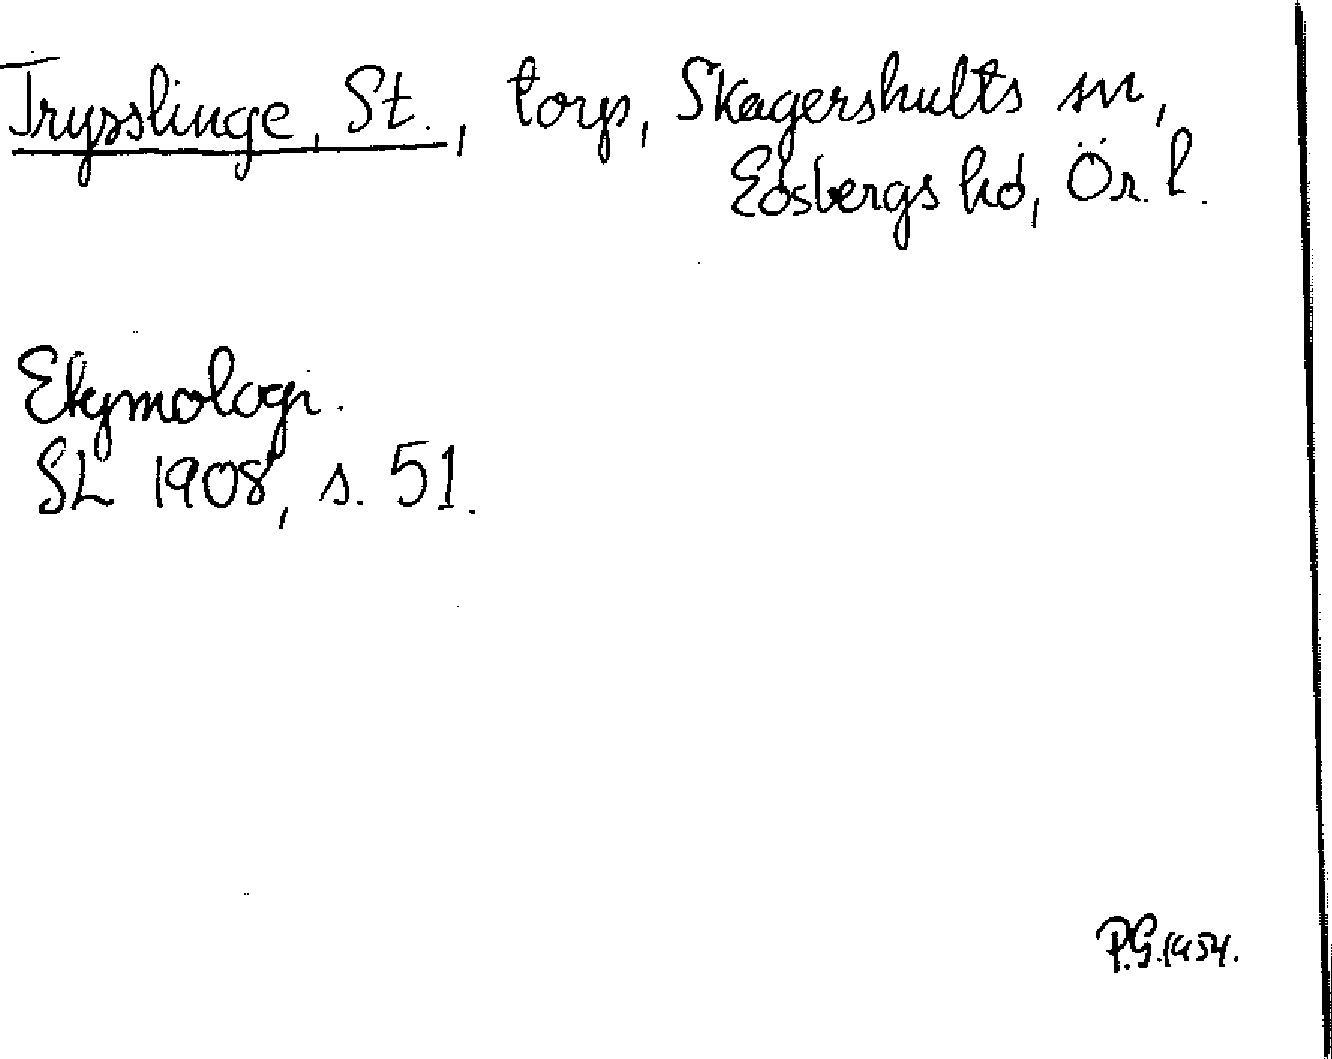 Trysslinge, St., torp, Skagershults sn,
Edsbergs hd, Ör. l.
Etymologi.
SL 1908, s. 51.
P.G. 1954.